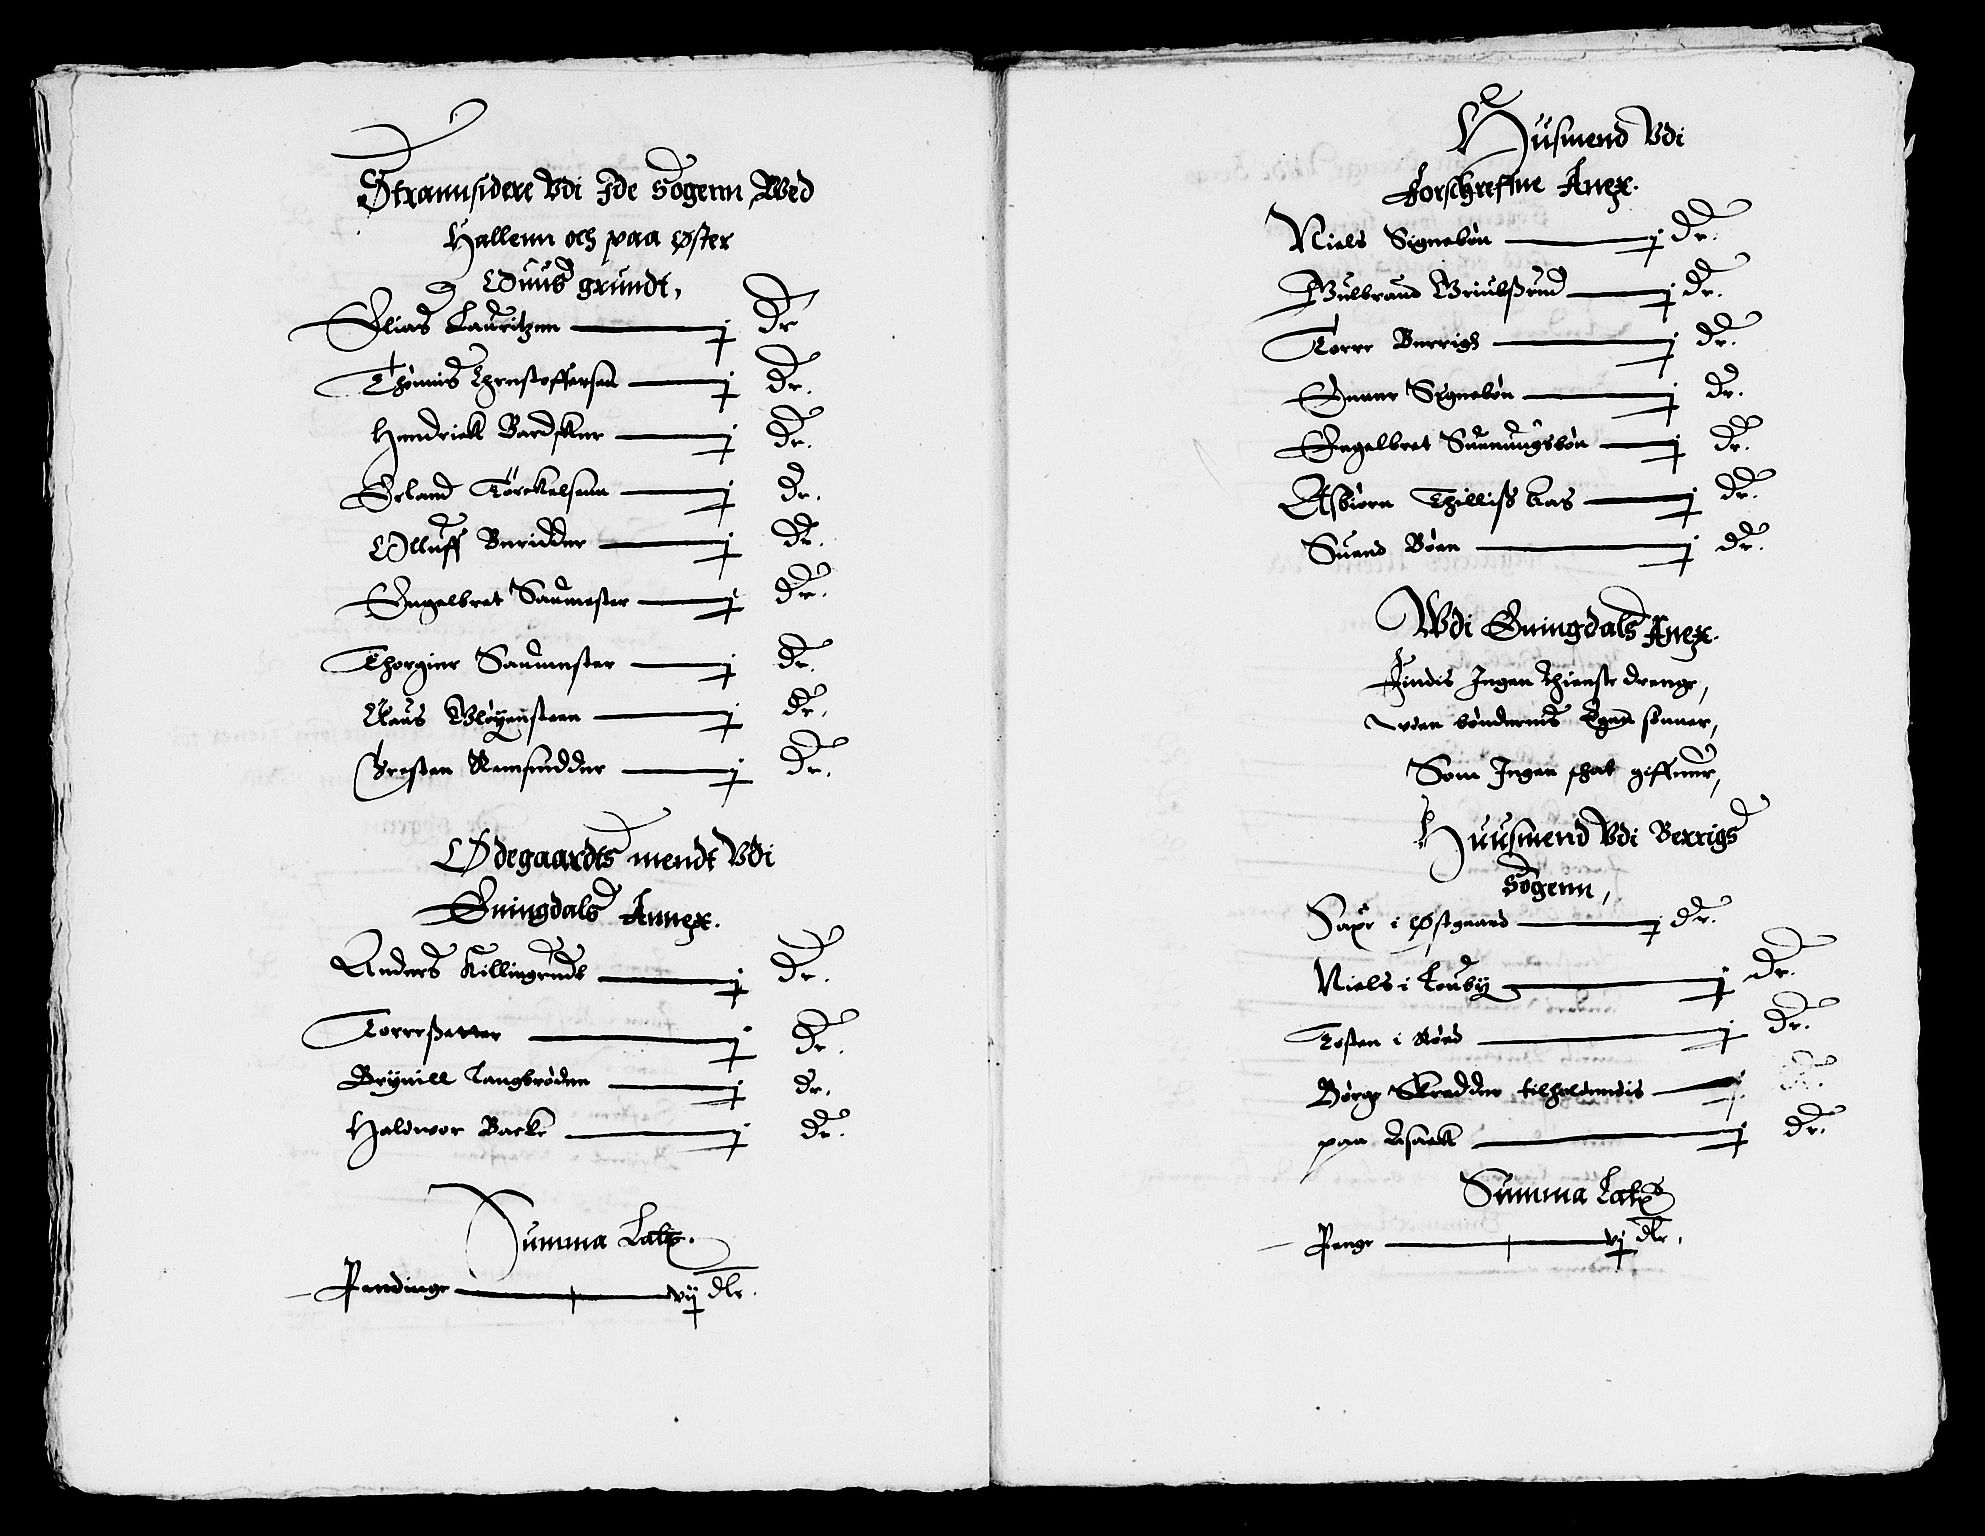 Strannsidere Vdi Ide Sogenn Wed
Hallenn och paa Øster
Øuus grundt,
Elias Lauritzenn j Dr
Thønnis Chrestoffersen j Dr.
Hendrich Bardsker j Dr.
Erland Törckelsenn j Dr.
Olluff Beridder j Dr.
Engelbret Saumester j Dr.
Thorgier Saumester j Dr.
Claus Bløyensteen j Dr.
Presten Remsnidder j Dr.
Ødegaardts mendt Vdi
Eningdals Annex.
Anders Killingrudt j Dr.
Torressetter j Dr.
Brynill Langbrøden j Dr.
Haldwor Backe j Dr.
Summa Lats.
Pendinge vij dlr.
Husmend Vdi
Forschreffne Anex.
Niels Signebøn j Dr.
Gulbrand Briulssrud j Dr.
Torre Berrigh j Dr.
Gunar Signebøn j Dr.
Engelbret Suenungsbøn j Dr.
Asbiørn Thilliss bas j Dr.
Suend Bøen j Dr.
Wdi Eningdals Anex.
Findis Ingen Thienste drenge,
vden bønderns Egne sønner,
Som Ingen schat giffuer,
Huusmend Vdi Berrigs
Sogenn,
Saxe i Østgaard j Dr.
Niels i Touby j Dr.
Tosten i Rød j Dr.
Børge Skredder tilholdendis
paa Asack j Dr.
Summa Lats
Penge vj dlr.